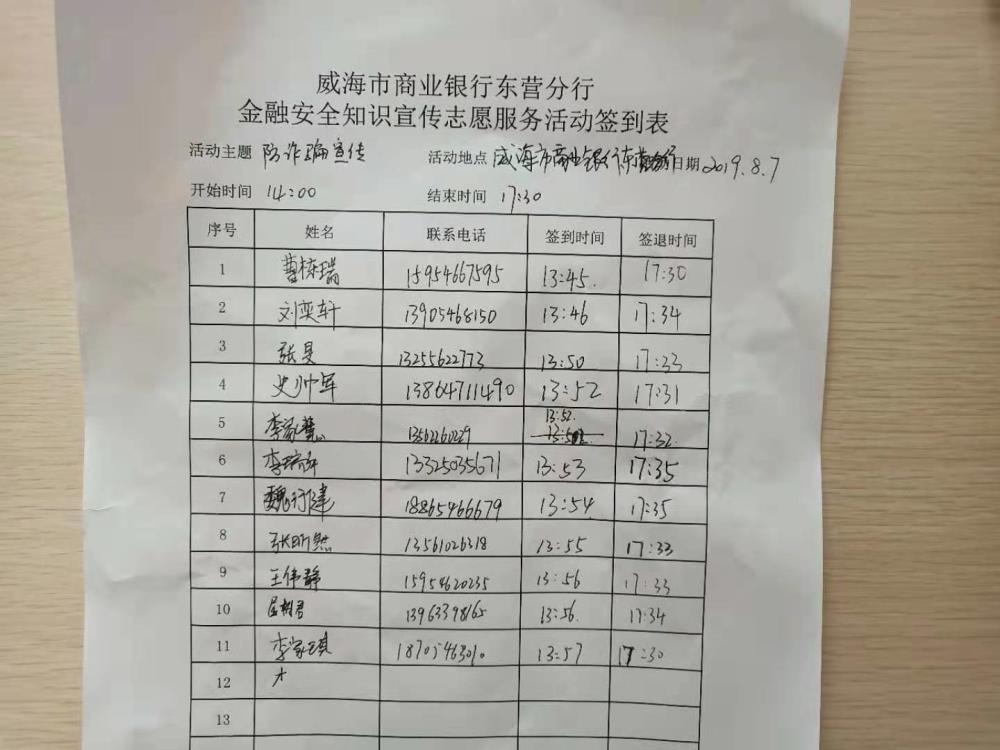 威海市商业银行东营分行
金融安全知识宣传志愿服务活动签到表
活动主题 防诈骗宣传 活动地点 威海市商业银行东营分行 日期 2019.8.7
开始时间 14:00 结束时间 17:30
序号 姓名 联系电话 签到时间 签退时间
1 曹栋瑞 15954667595 13:45. 17:30
2 刘奕轩 13905468150 13:46 17:34
3 张昊 13255622773 13:50 17:33
4 史帅军 13864711490 13:52 17:31
5 13562260229 13:52. 17:32.
6 13325035671 13:53 17:35
7 魏行健 18865466679 13:54 17:35
8 张昕然 13561026318 13:55 17:33
9 王伟静 15954620235 13:56 17:33
10 13963398165 13:56. 17:34
11 李家琪 18705463010 13:57 17:30
12
13